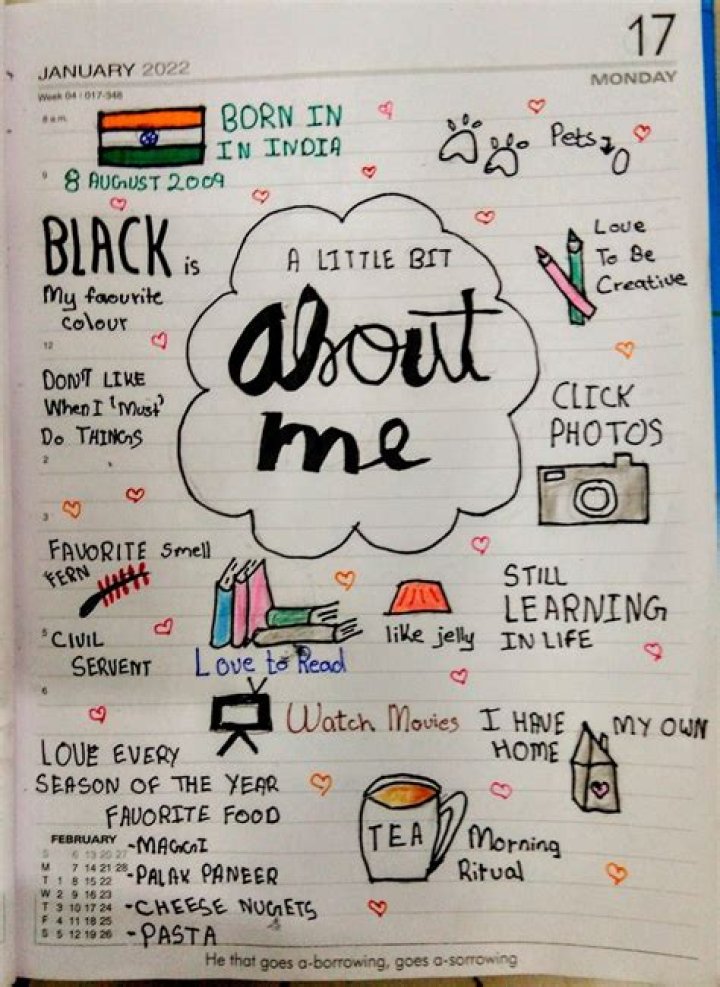 17
JANUARY 2022
MONDAY
Week 04 : 017-348
8 a.m.
BORN IN
IN INDIA
Pets
0
9
8 AUGUST 2009
BLACK is
My favourite
colour
A LITTLE BIT
about
me
Love
To Be
Creative
12
DON'T LIKE
When I 'Must'
Do THINGS
CLICK
PHOTOS
2
3
FAVORITE smell
FERN
STILL
LEARNING
IN LIFE
like jelly
5
CIVIL
SERVENT
Love to Read
6
Watch Movies
I HAVE MY OWN
HOME
LOVE EVERY
SEASON OF THE YEAR
FAVORITE FOOD
TEA
Morning
Ritual
-MAGGI
-PALAK PANEER
-CHEESE NUGETS
-PASTA
FEBRUARY
S 6 13 20 27
M 7 14 21 28
T 1 8 15 22
W 2 9 16 23
T 3 10 17 24
F 4 11 18 25
S 5 12 19 26
He that goes a-borrowing, goes a-sorrowing